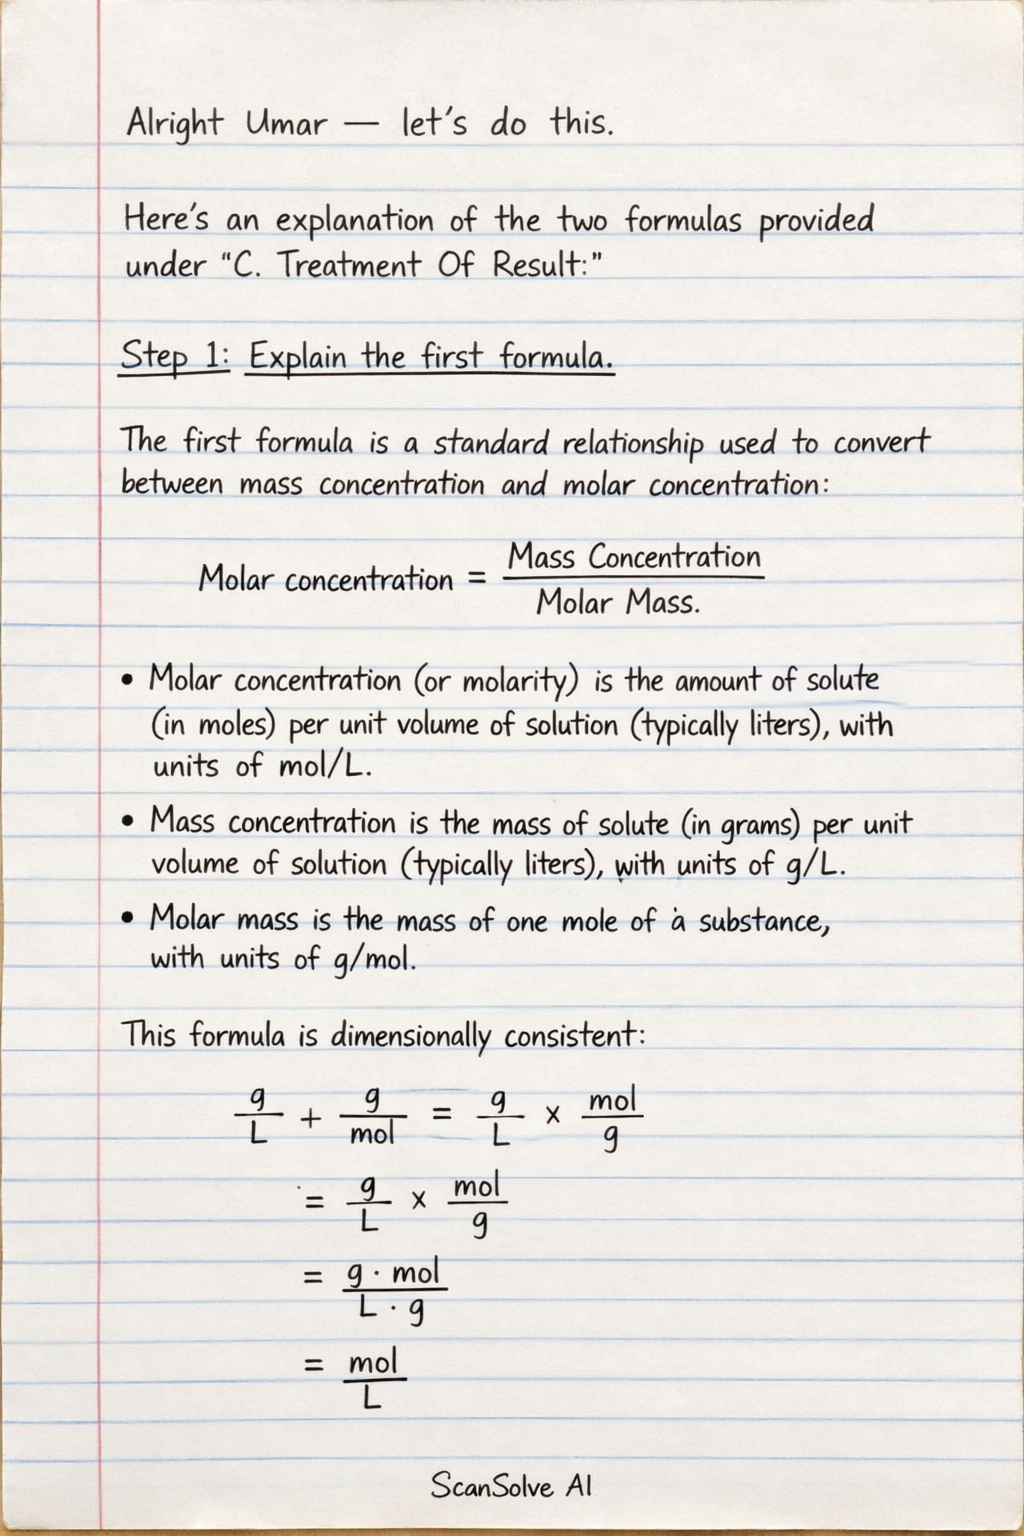 Alright Umar — let's do this.
Here's an explanation of the two formulas provided
under "C. Treatment Of Result:"
Step 1: Explain the first formula.
The first formula is a standard relationship used to convert
between mass concentration and molar concentration:
Molar concentration = Mass Concentration / Molar Mass.
• Molar concentration (or molarity) is the amount of solute
(in moles) per unit volume of solution (typically liters), with
units of mol/L.
• Mass concentration is the mass of solute (in grams) per unit
volume of solution (typically liters), with units of g/L.
• Molar mass is the mass of one mole of a substance,
with units of g/mol.
This formula is dimensionally consistent:
g/L + g/mol = g/L × mol/g
= g/L × mol/g
= g · mol / L · g
= mol/L
ScanSolve AI